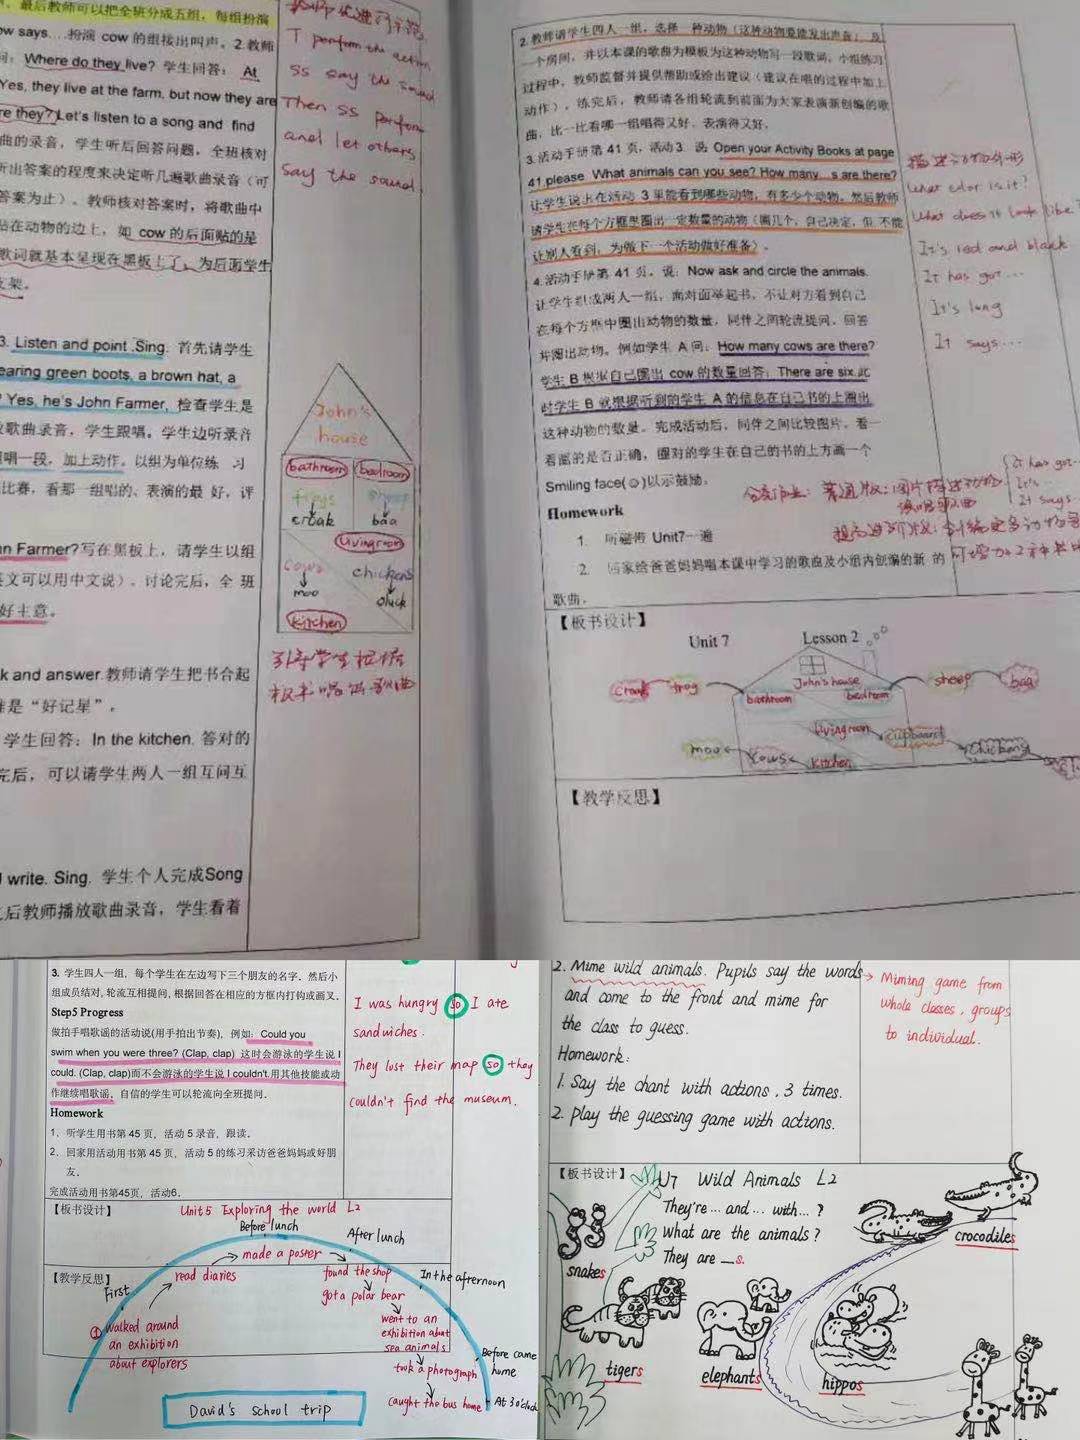 最后教师可以把全班分成五组，每组扮演
ow says....扮演 cow 的组接出叫声。2.教师
问：Where do they live? 学生回答： At
Yes, they live at the farm, but now they are
re they? Let's listen to a song and find
曲的录音，学生听后回答问题，全班核对
听出答案的程度来决定听几遍歌曲录音（可
答案为止）。教师核对答案时，将歌曲中
贴在动物的边上，如 cow 的后面贴的是
歌词就基本呈现在黑板上了，为后面学生
支架。
3. Listen and point .Sing. 首先请学生
earing green boots, a brown hat, a
? Yes, he's John Farmer, 检查学生是
放歌曲录音，学生跟唱。学生边听录音
跟唱一段，加上动作。以组为单位练 习
比赛，看那一组唱的、表演的最 好，评
hn Farmer?写在黑板上，请学生以组
英文可以用中文说）。讨论完后，全 班
好主意。
k and answer.教师请学生把书合起
谁是“好记星”。
学生回答：In the kitchen. 答对的
完后，可以请学生两人一组互问互
d write. Sing. 学生个人完成Song
之后教师播放歌曲录音，学生看着
T perform the action
SS say the sound
Then SS perform
and let others
Say the sound
John's
house
bathroom bedroom
frogs sheep
croak baa
livingroom
cows chickens
moo cluck
kitchen
引导学生根据
板书唱出歌曲
2. 教师请学生四人一组，选择一种动物（这种动物要能发出声音）及
一个房间，并以本课的歌曲为模板为这种动物写一段歌词，小组练习
过程中，教师监督并提供帮助或给出建议（建议在唱的过程中加上
动作）。练完后，教师请各组轮流到前面为大家表演新创编的歌
曲，比一比看哪一组唱得又好、表演得又好。
3.活动手册第 41 页，活动3 说 Open your Activity Books at page
41,please What animals can you see? How many...s are there?
让学生说上在活动 3 里能看到哪些动物，有多少个动物。然后教师
请学生在每个方框里圈出一定数量的动物（圈几个，自己决定，但 不能
让别人看到，为做下一个活动做好准备）。
4.活动手册第 41 页。说：Now ask and circle the animals.
让学生组成两人一组，面对面举起书，不让对方看到自己
在每个方框中圈出动物的数量，同伴之间轮流提问、回答
并圈出动物。例如学生 A 问：How many cows are there?
学生 B 根据自己圈出 cow 的数量回答：There are six.此
时学生 B 就根据听到的学生 A 的信息在自己书的上圈出
这种动物的数量。完成活动后，同伴之间比较图片，看一
看圈的是否正确，圈对的学生在自己的书的上方画一个
Smiling face(☺)以示鼓励。
Homework
1. 听磁带 Unit7一遍
2. 回家给爸爸妈妈唱本课中学习的歌曲及小组内创编的新 的
歌曲。
描述动物外形
What color is it?
What does it look like?
It's red and black
It has got...
It's long
It says...
It has got...
It's...
It says
【板书设计】
Unit 7 Lesson 2
John's house
croak frog bathroom bedroom sheep baa
livingroom cupboard chickens
moo cows kitchen
【教学反思】
3. 学生四人一组，每个学生在左边写下三个朋友的名字。然后小
组成员结对,轮流互相提问,根据回答在相应的方框内打钩或画叉。
Step5 Progress
做拍手唱歌谣的活动说(用手拍出节奏)，例如：Could you
swim when you were three? (Clap, clap) 这时会游泳的学生说 I
could. (Clap, clap)而不会游泳的学生说 I couldn't.用其他技能或动
作继续唱歌谣，自信的学生可以轮流向全班提问。
Homework
1、听学生用书第 45 页，活动 5 录音，跟读。
2、回家用活动用书第 45 页，活动 5 的练习采访爸爸妈妈或好朋
友。
完成活动用书第45页，活动6。
I was hungry so I ate
sandwiches.
They lost their map so they
couldn't find the museum.
【板书设计】 Unit5 Exploring the world L2
Before lunch
After lunch
made a poster
【教学反思】
read diaries
found the shop
In the afternoon
First
got a polar bear
① walked around
an exhibition
about explorers
went to an
exhibition about
sea animals
took a photograph
Before came
home
caught the bus home
At 3 o'clock
David's school trip
2. Mime wild animals. Pupils say the words
and come to the front and mime for
the class to guess.
Homework:
1. Say the chant with actions, 3 times.
2. play the guessing game with actions.
Miming game from
whole classes, groups
to individual.
【板书设计】 U7 Wild Animals L2
They're ... and ... with... ?
What are the animals ?
They are __s.
snakes
crocodiles
tigers
elephants
hippos